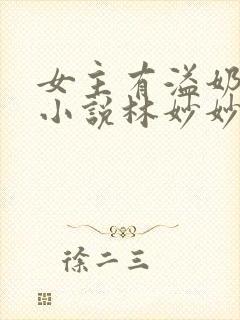 女主有溢奶
小说林妙妙
徐二三